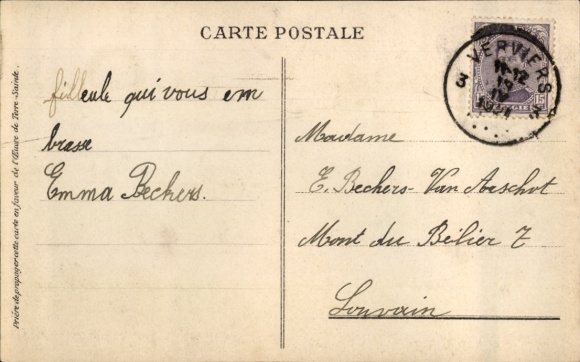 CARTE POSTALE
filleule qui vous em
brasse
Emma Bechers.
Madame
E. Bechers-Van Aarschot
Mont du Bélier 7
Louvain
VERVIERS
3
Prière de propager cette carte en faveur de l'Œuvre de Terre-Sainte.